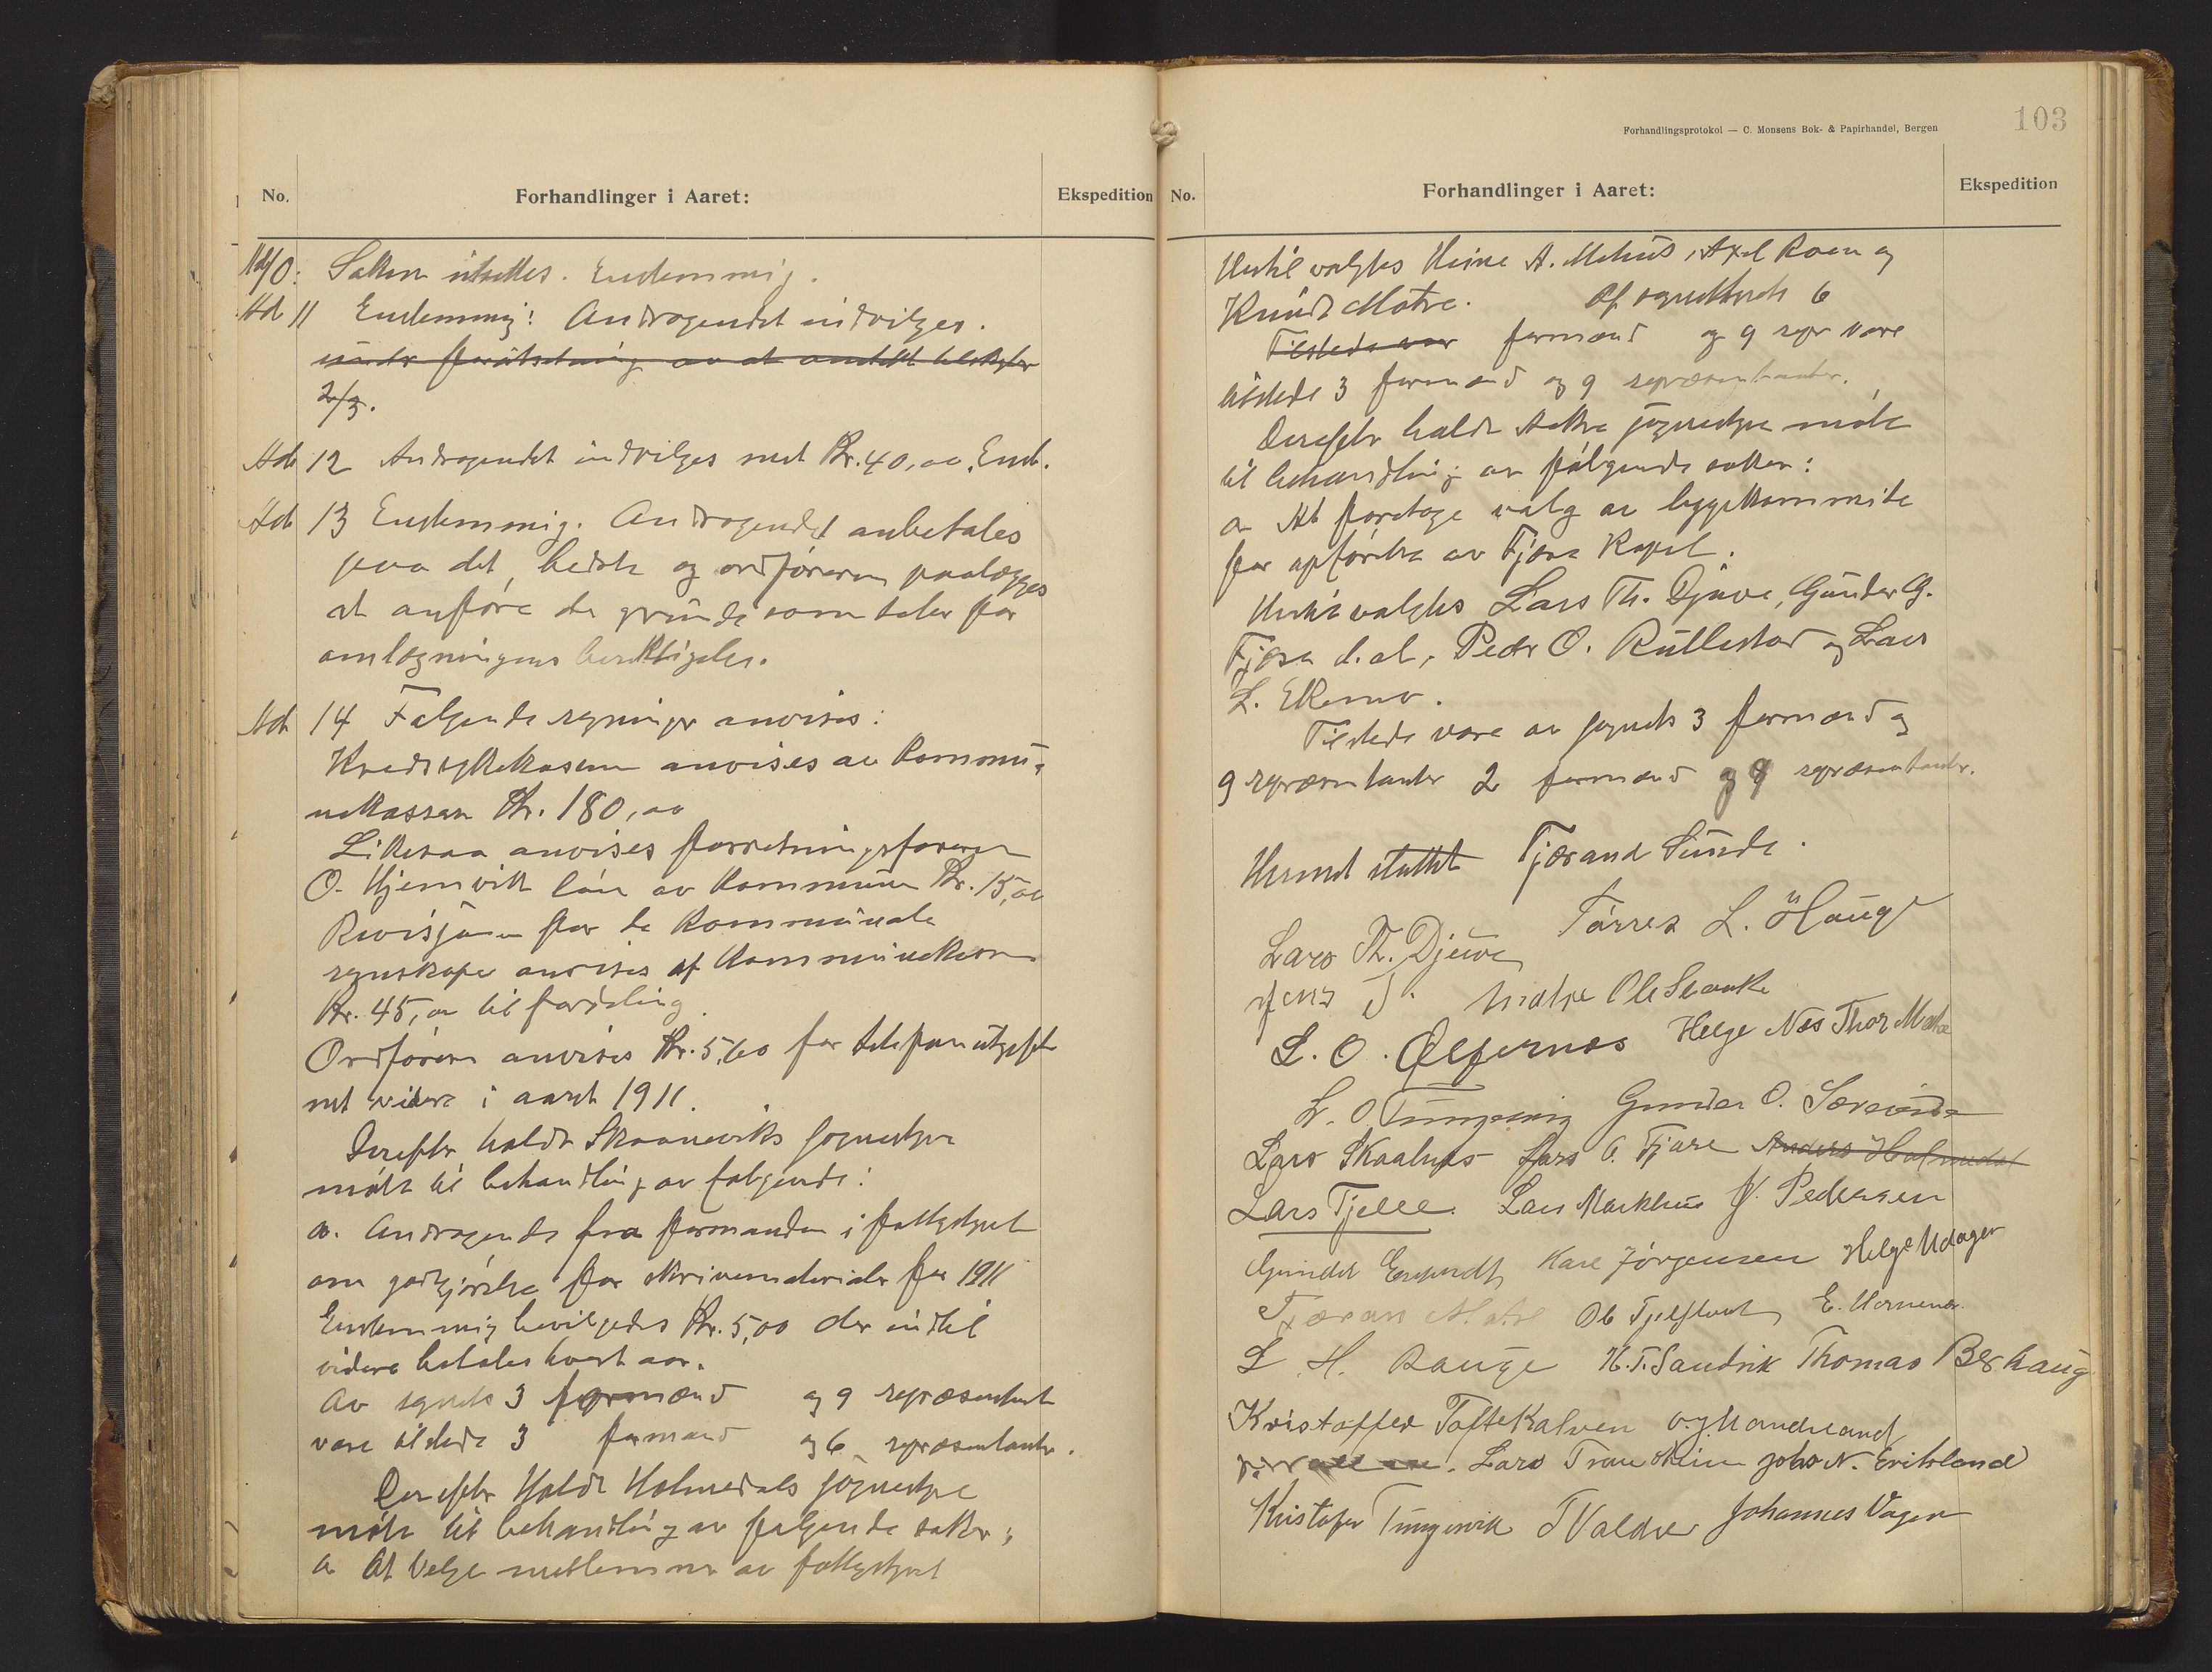 No.
Forhandlinger i Aaret:
Ekspedition
Ad 10: Saken utsettes. Enstemmig.
Ad 11 Enstemmig: Andragendet indvilges.
under forutsetning av at andet tilskyter
2/3.
Ad 12 Andragendet indvilges med Kr. 40,00. Enst.
Ad 13 Enstemmig. Andragendet anbefales
paa det bedste og ordføreren paalægges
at anføre de grunde som taler for
omlægningens berettigelse.
Ad 14 Følgende regninger anvises:
Kredssykekassen anvises av kommu-
nekassen Kr. 180,00
Likesaa anvises forretningsføreren
O. Hjemvik løn av kommunen Kr. 15,00
Revisjonen for de kommunale
regnskaper anvises af kommunekassen
Kr. 45,00 til fordeling.
Ordføreren anvises Kr. 5,60 for telefonutgifter
med videre i aaret 1911.
Derefter holdt Skaaneviks sognestyre
møte til behandling av følgende:
a. Andragende fra formanden i fattigstyret
om godtgjørelse for skrivematerialer for 1911
Enstemmig bevilgedes Kr. 5,00 der indtil
videre betales hvert aar.
Av sognets 3 formænd og 9 repræsentanter
vare tilstede 3 formænd og 6 repræsentanter.
Derefter holdt Holmedals sognestyre
møte til behandling av følgende saker:
a At velge medlemmer av fattigstyret
Forhandlingsprotokol — C. Monsens Bok- & Papirhandel, Bergen
103
No.
Forhandlinger i Aaret:
Ekspedition
Hertil valgtes Heine A. Mehus, Axel Roen og
Knud Matre. Af sognets 6
Tilstede var formænd og 9 repr vare
tilstede 3 formænd og 9 repræsentanter.
Derefter holdt Aakre sognestyre møte
til behandling av følgende saker:
a At foretage valg av byggekommite
for opførelse av Fjæra Kapel.
Hertil valgtes Lars Th. Djuve, Gunder G.
Fjæra d. a., Peder O. Rullestad og Lars
L. Ekemo.
Tilstede vare av sognets 3 formænd og
9 repræsentanter 2 formænd og 9 repræsentanter.
Hermed sluttet Tjærand Sunde.
Tørres L. Hauge
Lars Th. Djuve
Jens J. Matre Ole Svanke
L. O. Ølfernæs Helge Næs Thor Matre
L. O. Tungesvig Gunder O. Særeinde
Lars Skaalnes Lars O. Fjære Anders Holmedal
Lars Tjelle Lars Markhus J. Pedersen
Gunder Karl Jørgensen Helge Udager
Tjæran Matre Ole Tjelflaat E. Hornenes
L. H. Hauge H. T. Sandvik Thomas Berhaug
Kristoffer Toftekalven
Lars Trauskeim John N. Erikland
Kristofer Tungesvik T Valder Johannes Vagen